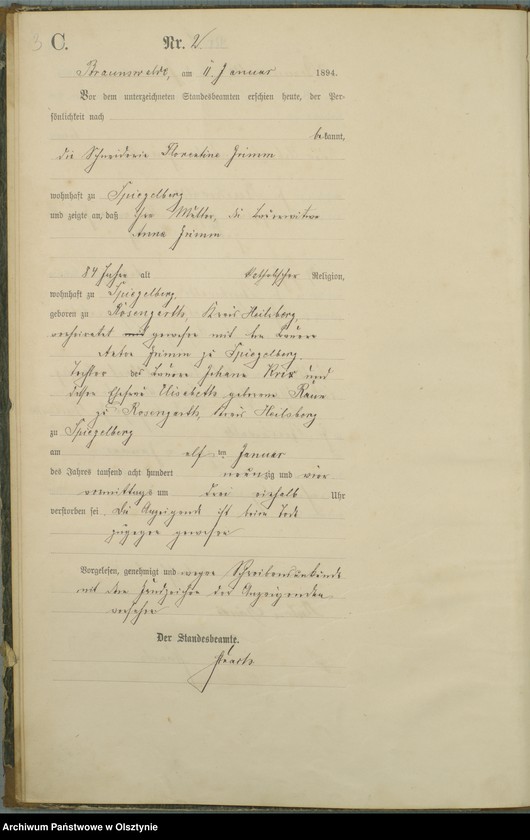 C. Nr. 2
Braunswalde, am 11. Januar 1894.
Vor dem unterzeichneten Standesbeamten erschien heute, der Per-
sönlichkeit nach
bekannt,
die Schneiderin Florentine Grimm
wohnhaft zu Spiegelberg
und zeigte an, daß ihre Mutter, die Bauerwitwe
Anna Grimm
84 Jahre alt katholischer Religion,
wohnhaft zu Spiegelberg
geboren zu Rosengarth, Kreis Heilsberg,
verheiratet mit gewesen mit dem Bauer
Grimm zu Spiegelberg
Tochter des Bauern Johann Krix und
dessen Ehefrau Elisabeth geborene
zu Rosengarth, Kreis Heilsberg
zu Spiegelberg
am elf ten Januar
des Jahres tausend acht hundert neunzig und vier
vormittags um drei einhalb Uhr
verstorben sei. Die Anzeigende ist beim Tode
zugegen gewesen
Vorgelesen, genehmigt und wegen Schreibensunkunde
mit dem Handzeichen der Anzeigenden
versehen
Der Standesbeamte.
Archiwum Państwowe w Olsztynie